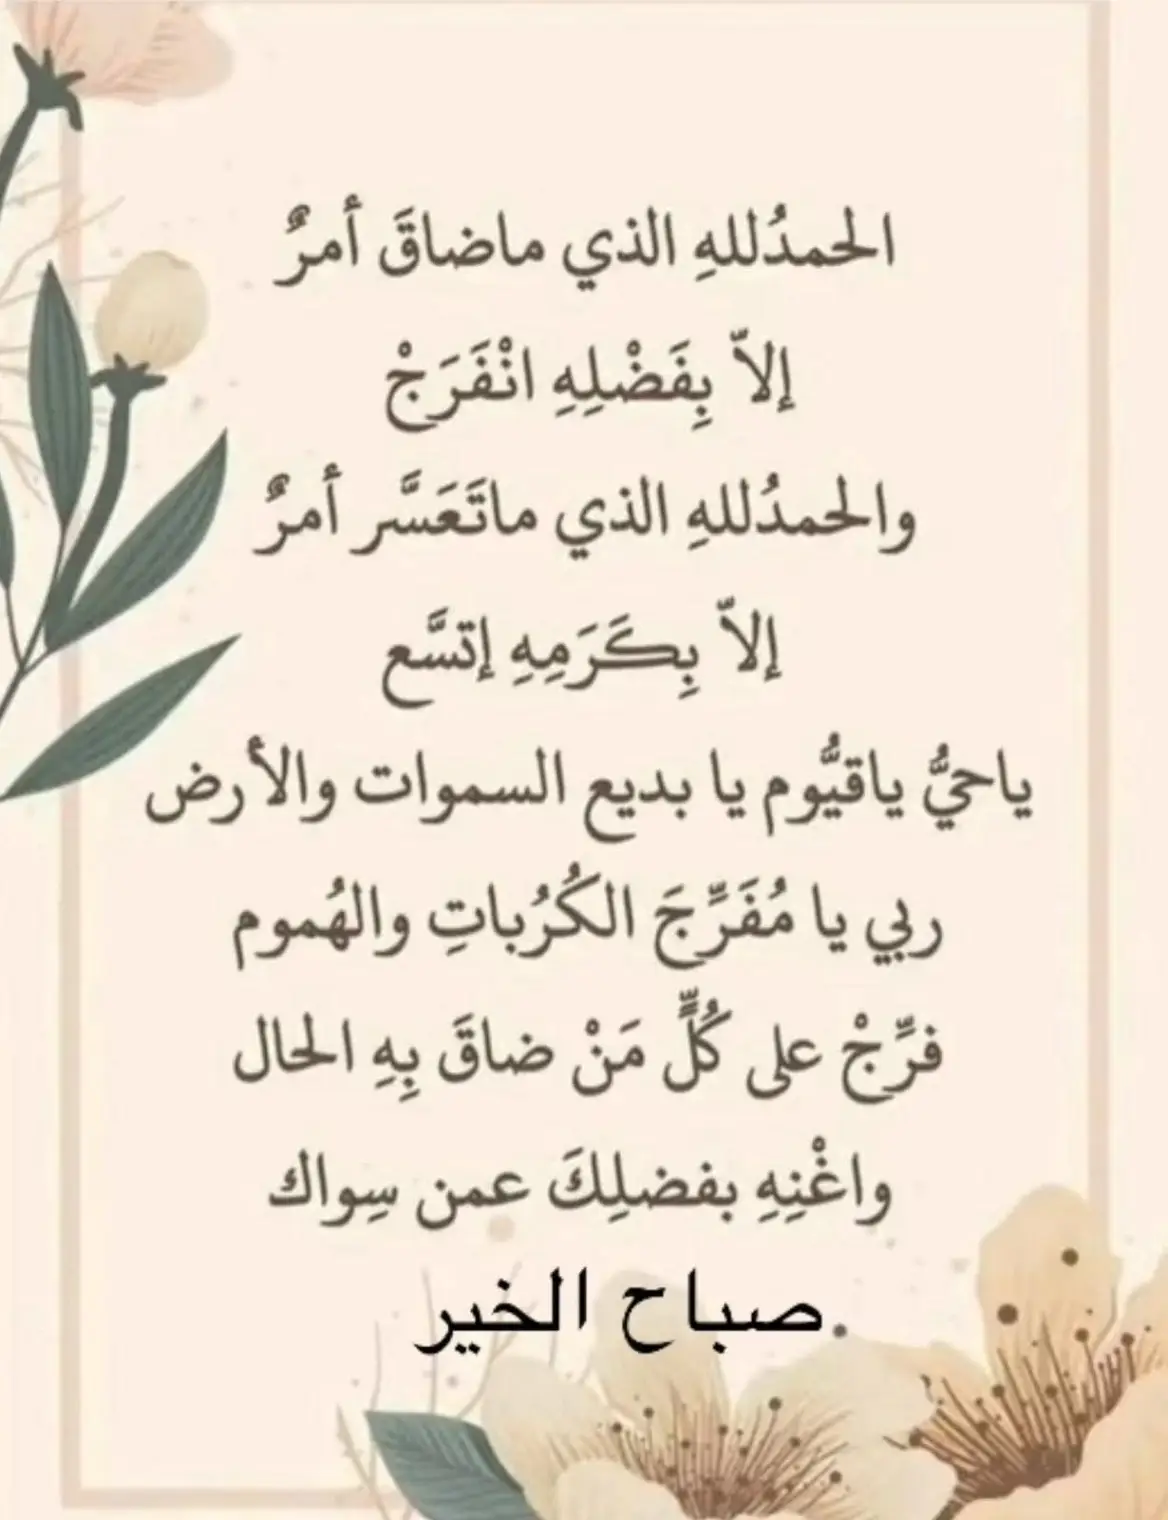 الحمدُللهِ الذي ماضاقَ أمرٌ
إلاّ بِفَضْلِهِ انْفَرَجْ
والحمدُللهِ الذي ماتَعَسَّر أمرٌ
إلاّ بِكَرَمِهِ إتسَّع
ياحيُّ ياقيُّوم يا بديع السموات والأرض
ربي يا مُفَرِّجَ الكُرُباتِ والهُموم
فرِّجْ على كُلٍّ مَنْ ضاقَ بِهِ الحال
واغْنِهِ بفضلِكَ عمن سِواك
صباح الخير